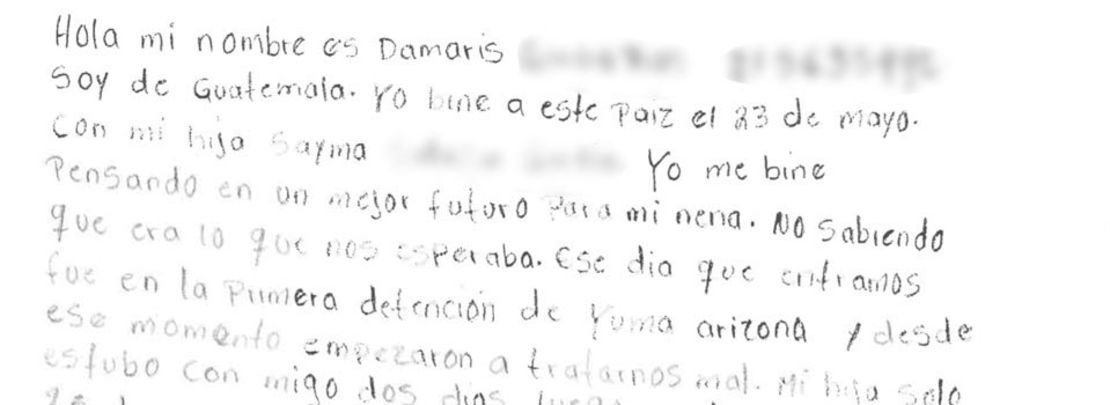 Hola mi nombre es Damaris
Soy de Guatemala. Yo bine a este Paiz el 23 de mayo.
Con mi hija Sayma Yo me bine
Pensando en un mejor futuro Para mi nena. No Sabiendo
que era lo que nos esperaba. Ese dia que entramos
fue en la Primera detencion de Yuma arizona y desde
ese momento empezaron a tratarnos mal. Mi hija solo
estubo con migo dos dias luego